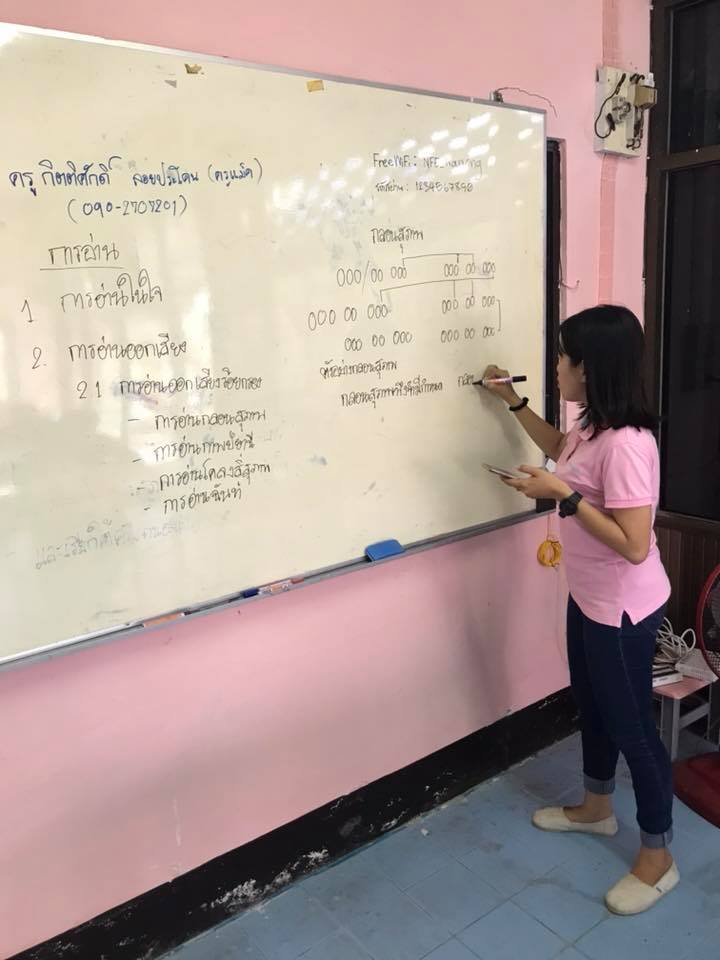 ครู กิตติศักดิ์ ลอยประโคน (ครูแม็ค)
(090-2707201)
การอ่าน
1 การอ่านในใจ
2. การอ่านออกเสียง
2.1 การอ่านออกเสียงร้อยกรอง
- การอ่านกลอนสุภาพ
- การอ่านกาพย์ยานี
- การอ่านโคลงสี่สุภาพ
- การอ่านฉันท์
Free WiFi : NFE_
รหัสผ่าน : 1234567890
กลอนสุภาพ
000/00 000 000 00 000
000 00 000 000 00 000
000 00 000 000 00 000
ตัวอย่างกลอนสุภาพ
กลอนสุภาพ